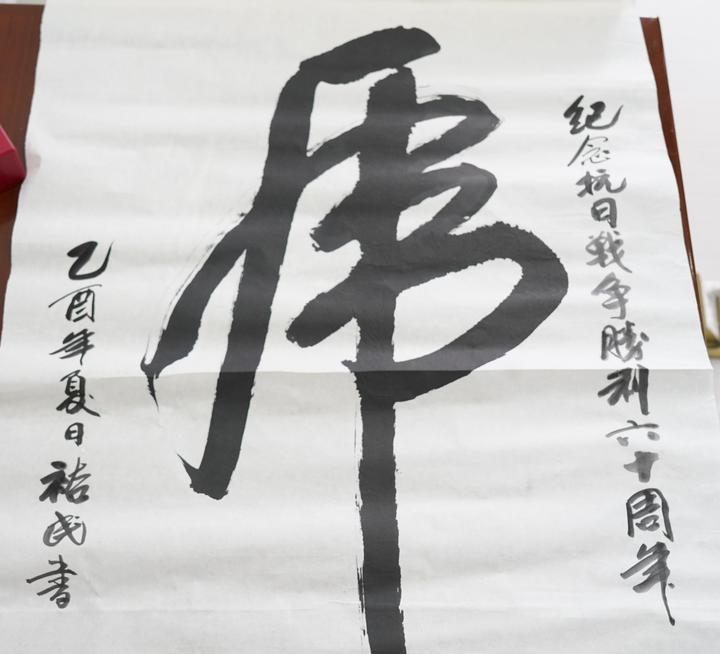 紀念抗日戰争勝利六十周年
虎
乙酉年夏日祜民書